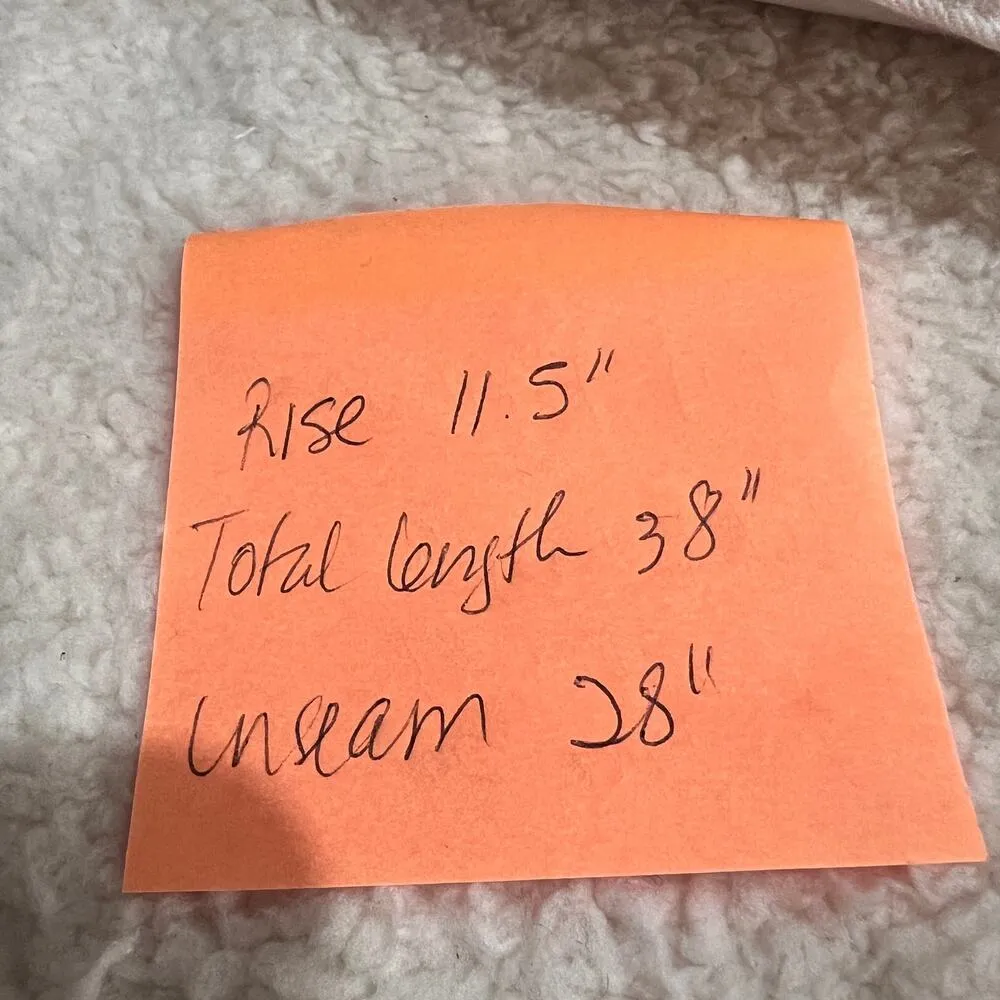 Rise 11.5"
Total length 38"
inseam 28"